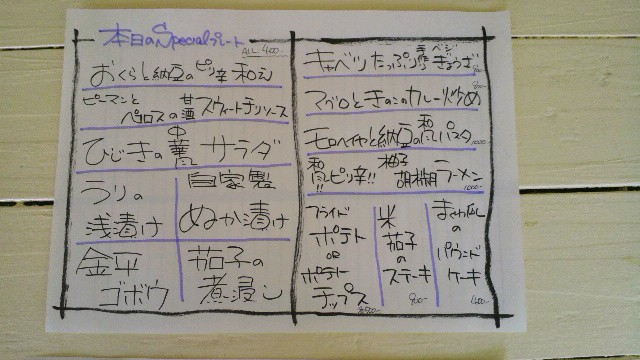 本日のSpecialプレート
ALL 400-
おくらと納豆のピリ辛和え
ピーマンと
ペロスの甘酒スウィートチリソース
ひじきの中華サラダ
うりの
浅漬け
自家製
ぬか漬け
金平
ゴボウ
茄子の
煮浸し
キャベツたっぷり手作りベジぎょうざ
マグロときのこのカレー炒め
モロヘイヤと納豆の和風パスタ
和風!!ピリ辛!!柚子胡椒ラーメン
フライド
ポテト
or
ポテト
チップス
米
茄子
の
ステーキ
まくわ瓜
の
パウンド
ケーキ
400-